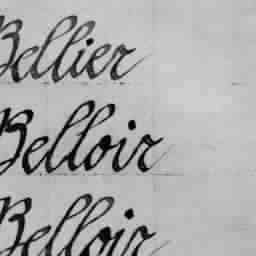 Bellier
Belloir
Belloir